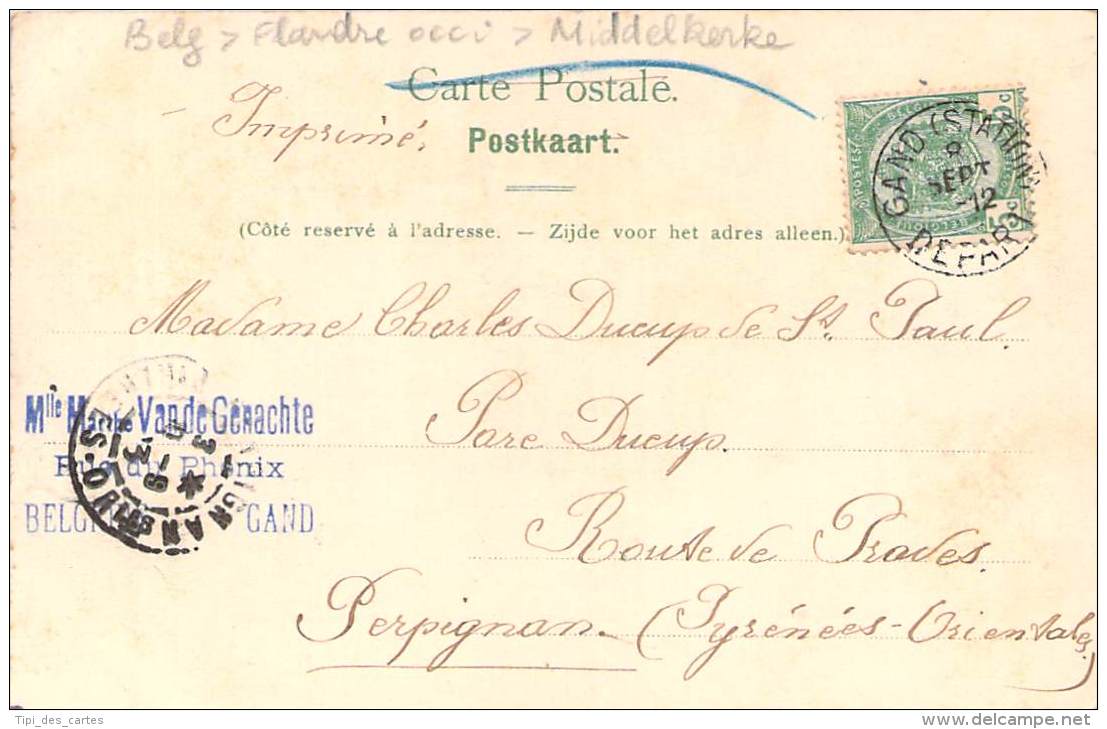 Belg > Flandre occi > Middelkerke
Carte Postale.
Imprimé.
Postkaart.
(Côté reservé à l'adresse. — Zijde voor het adres alleen.)
GAND (STATION)
9
SEPT
-12
DEPART
POSTES
Madame Charles Ducup de St. Paul.
Parc Ducup.
Route de Prades.
Perpignan. (Pyrénées-Orientales)
Mlle Vande Genachte
Rue du Phénix
GAND
Tipi_des_cartes
www.delcampe.net